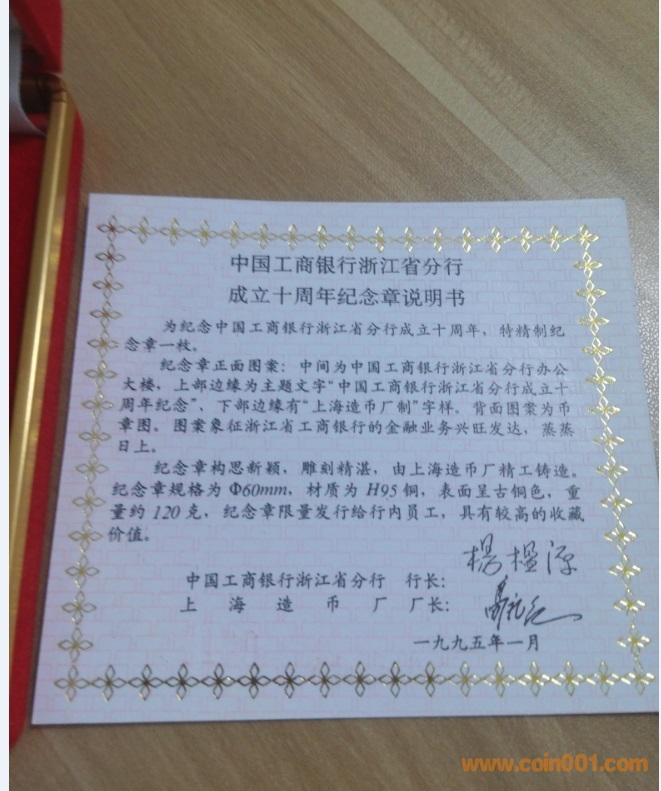 中国工商银行浙江省分行
成立十周年纪念章说明书
为纪念中国工商银行浙江省分行成立十周年，特精制纪
念章一枚。
纪念章正面图案：中间为中国工商银行浙江省分行办公
大楼，上部边缘为主题文字“中国工商银行浙江省分行成立十
周年纪念”、下部边缘有“上海造币厂制”字样。背面图案为币
章图。图案象征浙江省工商银行的金融业务兴旺发达，蒸蒸
日上。
纪念章构思新颖，雕刻精湛，由上海造币厂精工铸造。
纪念章规格为Φ60mm，材质为H95铜，表面呈古铜色，重
量约120克，纪念章限量发行给行内员工，具有较高的收藏
价值。
中国工商银行浙江省分行 行长：
上海造币厂 厂长：
一九九五年一月
www.coin001.com